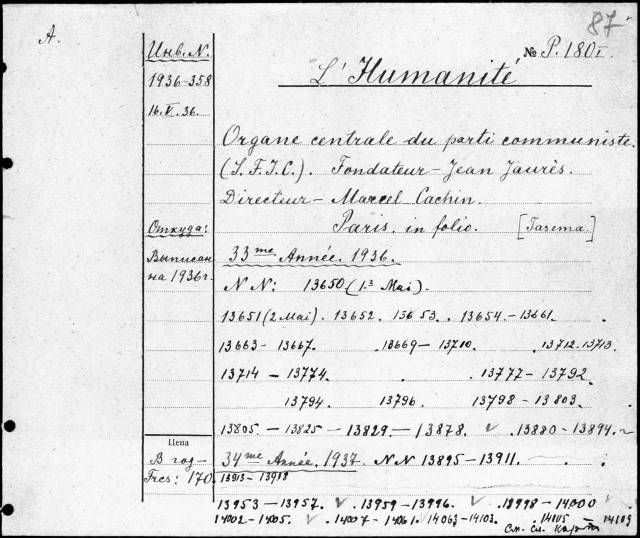 87
A.
Инв. N.
№ P. 180 I.
1936-358
L'Humanité
16.V.36.
Organe centrale du parti communiste.
(S.F.I.C.). Fondateur - Jean Jaurès.
Directeur - Marcel Cachin.
Откуда:
Paris, in folio. [Газета.]
Выписан
на 1936 г.
33me Année. 1936.
N N: 13650 (1.з Mai).
13651 (2 Mai). 13652. 13653. 13654.-13661.
13663- 13667. 13669- 13710. 13712. 13713.
13714 - 13774. 13777-13792.
13794. 13796. 13798-13803.
13805. -13825 -13829.-13878. 13880-13894.
Цена
В год-
Frcs: 170.
34me Année. 1937. N N 13895-13911.
13913-13918
13953-13957. 13959-13996. 13998-14000
14002-14005. 14007-14061. 14063-14103. 14105 14109
См. сл. карт.